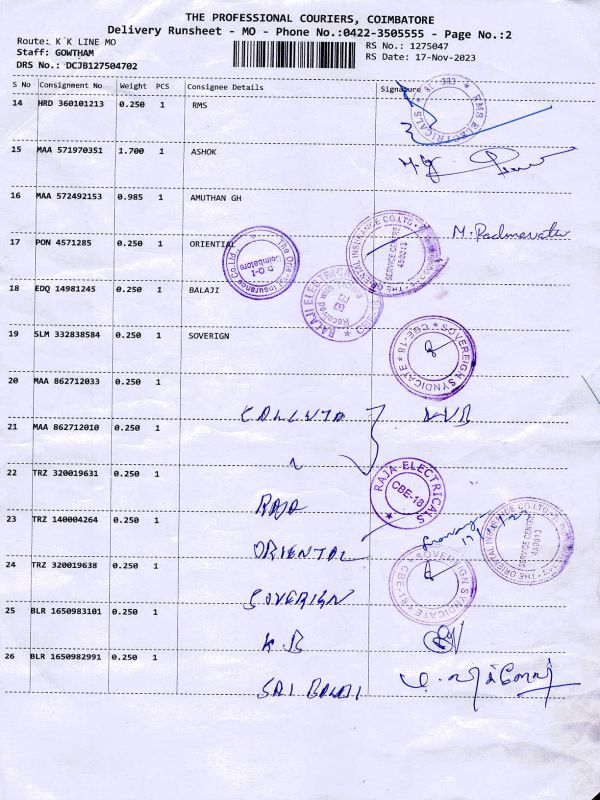 THE PROFESSIONAL COURIERS, COIMBATORE
Delivery Runsheet - MO - Phone No.:0422-3505555 - Page No.:2
Route: K K LINE MO
RS No.: 1275047
Staff: GOWTHAM
RS Date: 17-Nov-2023
DRS No.: DCJB127504702
S No Consignment No Weight PCS Consignee Details Signature
14 HRD 360101213 0.250 1 RMS
RMS ELECTRICALS
15 MAA 571970351 1.700 1 ASHOK
16 MAA 572492153 0.985 1 AMUTHAN GH
M. Padmavathi
17 PON 4571285 0.250 1 ORIENTAL
The Oriental Insurance Co.Ltd.
D-O-1
Coimbatore
THE ORIENTAL INSURANCE CO.LTD.
SERVICE CENTRE
450013
18 EDQ 14981245 0.250 1 BALAJI
BALAJI ELECTRICALS
19 SLM 332838584 0.250 1 SOVERIGN
SOVEREIGN SYNDICATE * CBE-18 *
20 MAA 862712033 0.250 1
21 MAA 862712010 0.250 1
22 TRZ 320019631 0.250 1
RAJA
RAJA ELECTRICALS
CBE-18
23 TRZ 140004264 0.250 1
ORIENTAL
THE ORIENTAL INSURANCE CO.LTD.
SERVICE CENTRE
450013
24 TRZ 320019638 0.250 1
SOVERIGN
SOVEREIGN SYNDICATE * CBE-18 *
25 BLR 1650983101 0.250 1
K.B
26 BLR 1650982991 0.250 1
SRI BALAJI